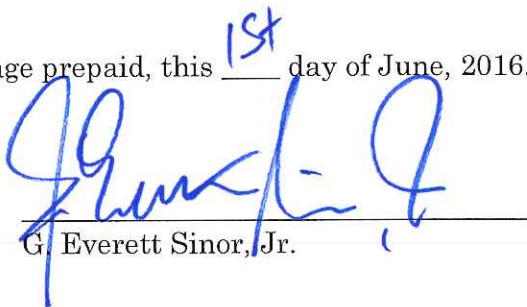 age prepaid, this 1st day of June, 2016.
G. Everett Sinor, Jr.